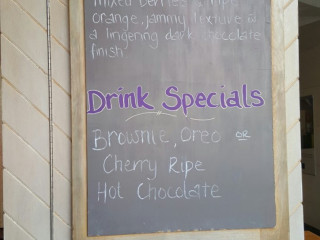 mixed berries, a ripe
orange, jammy texture &
a lingering dark chocolate
finish
Drink Specials
Brownie, Oreo OR
Cherry Ripe
Hot Chocolate